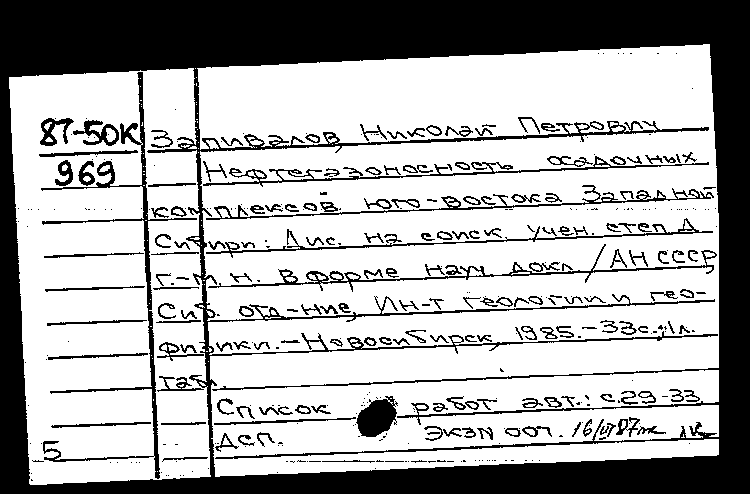 87-50К Запивалов, Николай Петрович
969 Нефтегазоносность осадочных
комплексов юго-востока Западной
Сибири: Дис. на соиск. учен. степ. д.
г.-м. н. в форме науч. докл. / АН СССР,
Сиб. отд-ние, Ин-т геологии и гео-
физики. - Новосибирск, 1985. - 33 с., 1 л.
табл.
Список работ авт.: с. 29-33
5 ДСП. Экз N 007. 16/VI 87